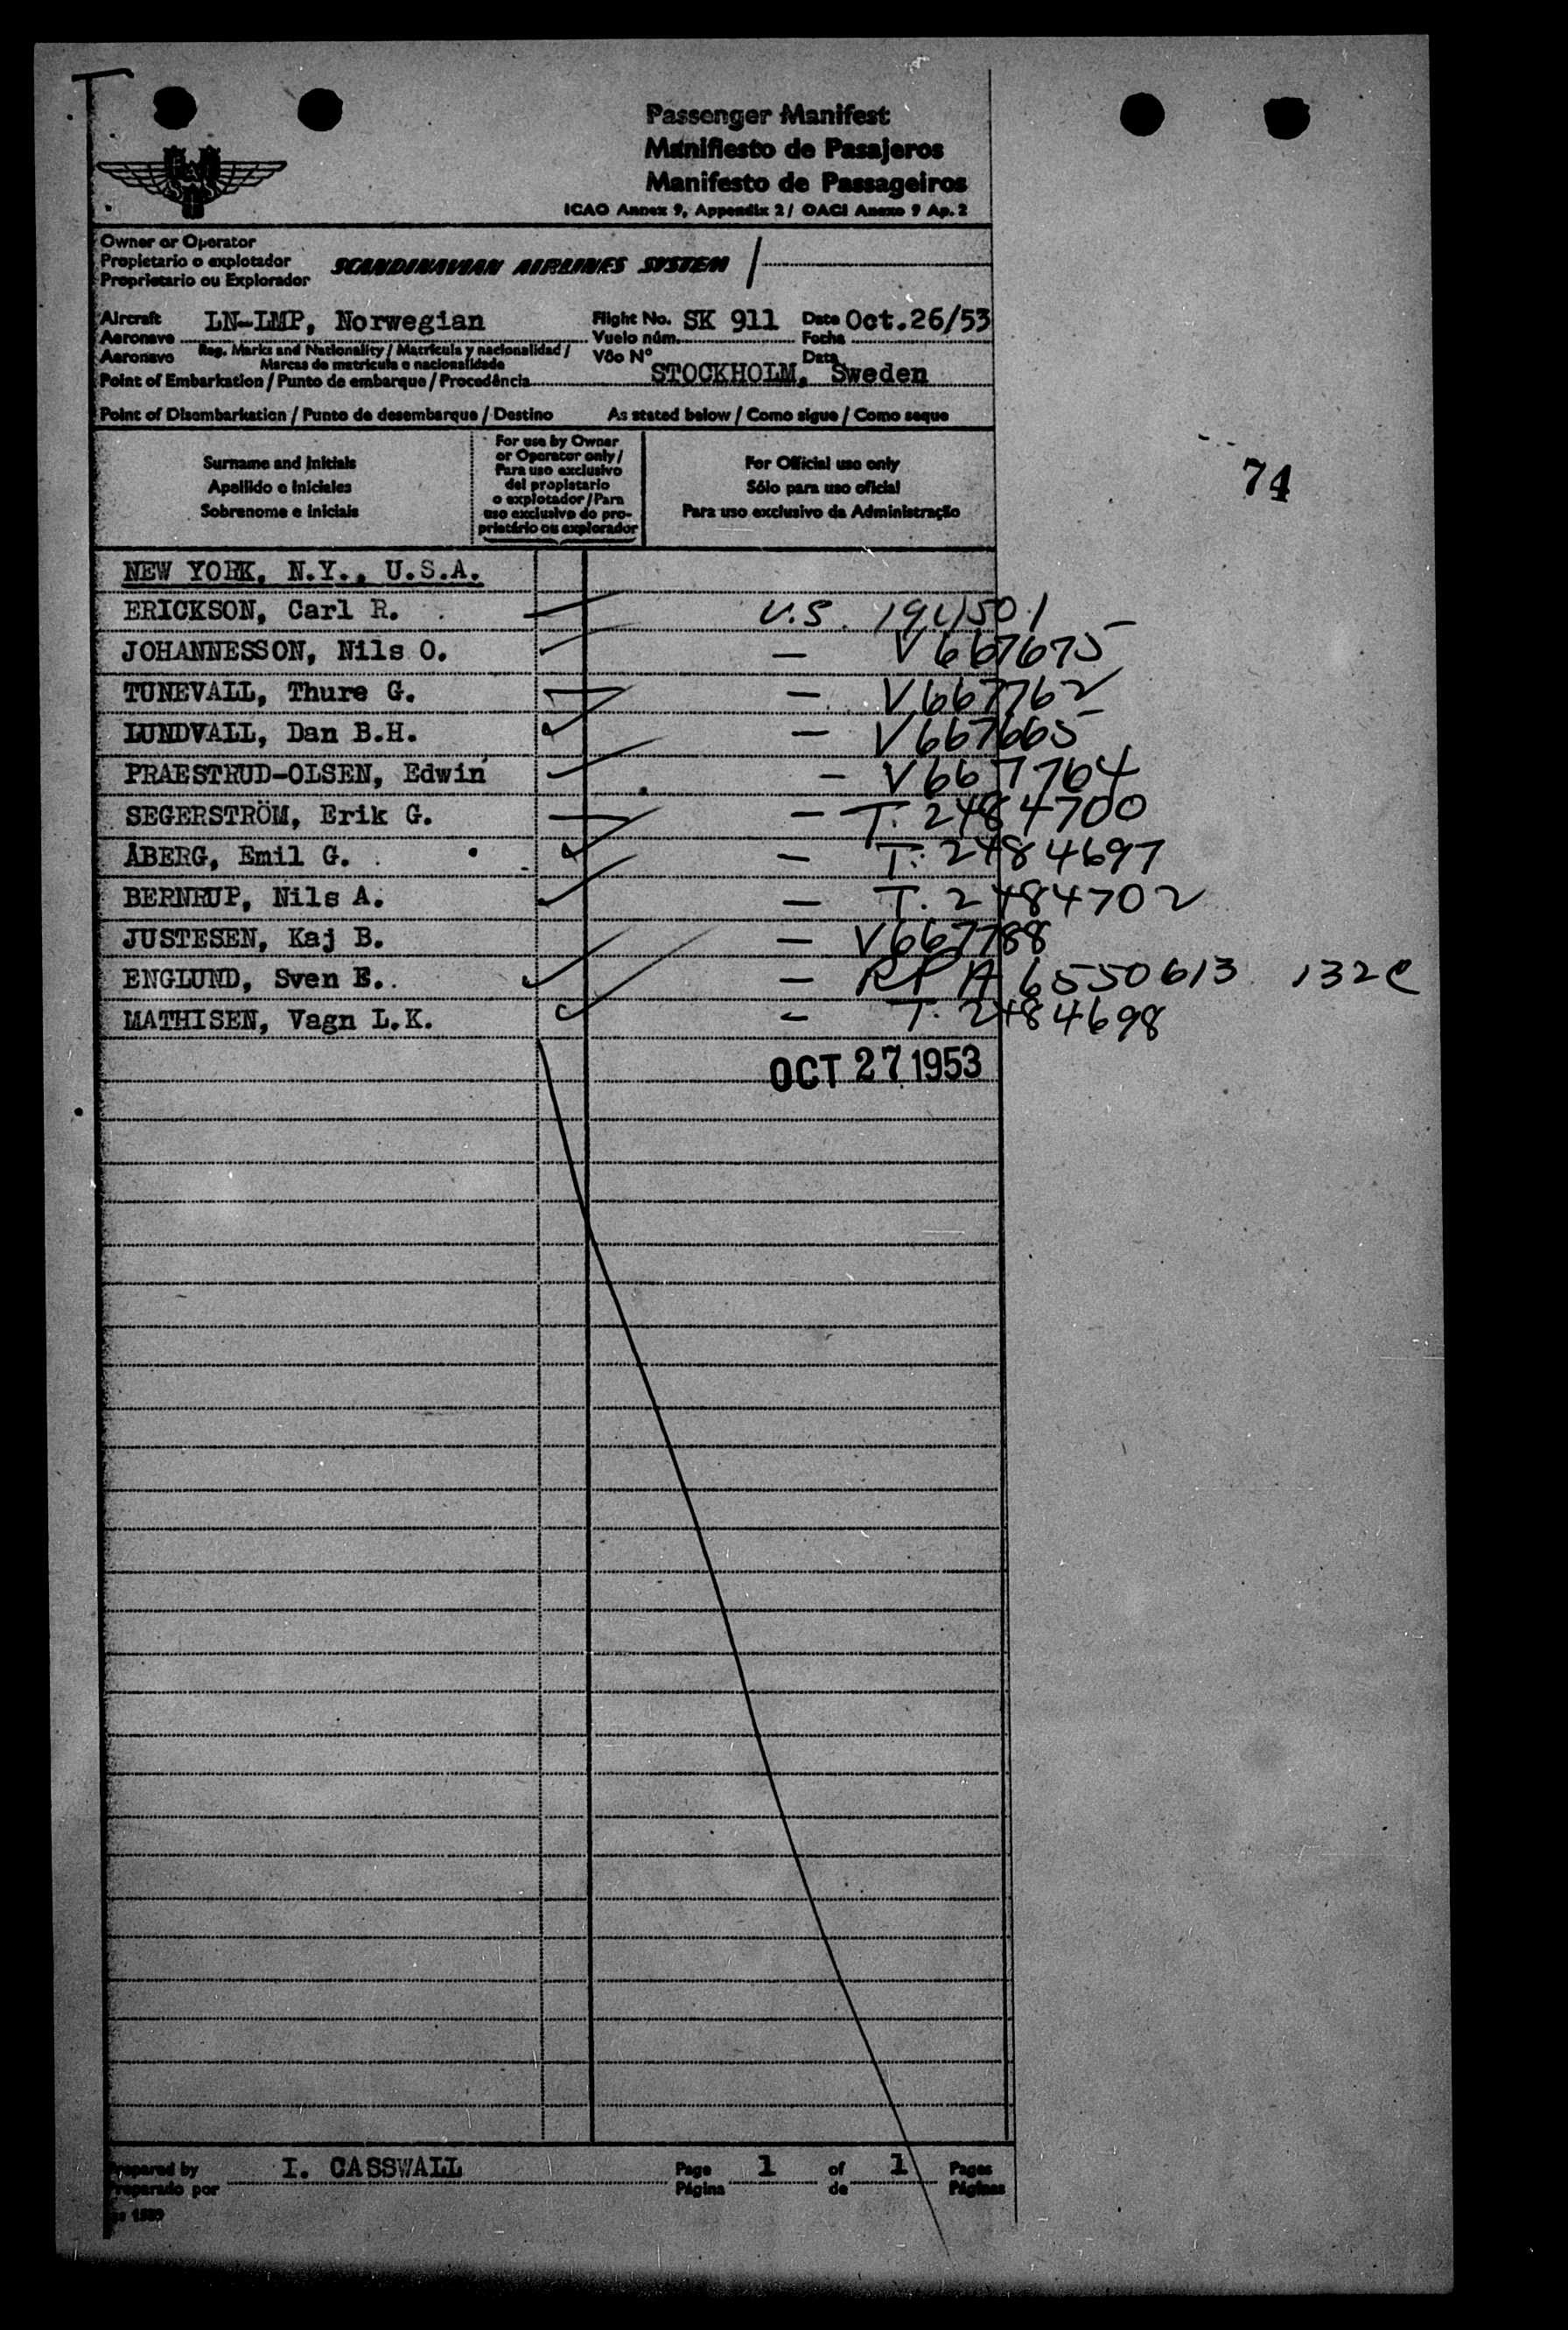 Passenger Manifest
Manifiesto de Pasajeros
Manifesto de Passageiros
ICAO Annex 9, Appendix 2 / OACI Anexo 9 Ap. 2
Owner or Operator
Propietario o explotador
Proprietario ou Explorador
SCANDINAVIAN AIRLINES SYSTEM
Aircraft LN-LMP, Norwegian Flight No. SK 911 Date Oct.26/53
Aeronave Vuelo núm. Fecha
Aeronavo Reg. Marks and Nationality / Matrícula y nacionalidad / Vôo Nº Data
Marcas de matricula e nacionalidade
Point of Embarkation / Punto de embarque / Procedência STOCKHOLM, Sweden
Point of Disembarkation / Punto de desembarque / Destino As stated below / Como sigue / Como seque
Surname and Initials
Apellido e Iniciales
Sobrenome e Iniciais
For use by Owner
or Operator only /
Para uso exclusivo
del propietario
o explotador / Para
uso exclusivo do pro-
prietário ou explorador
For Official use only
Sólo para uso oficial
Para uso exclusivo da Administração
74
NEW YORK, N.Y., U.S.A.
ERICKSON, Carl R. U.S.
JOHANNESSON, Nils O. — V 667675
TUNEVALL, Thure G. — V667762
LUNDVALL, Dan B.H. — V667665
PRAESTRUD-OLSEN, Edwin — V667764
SEGERSTRÖM, Erik G. — T. 2484700
ÅBERG, Emil G. — T. 2484697
BERNRUP, Nils A. — T. 2484702
JUSTESEN, Kaj B. — V667788
ENGLUND, Sven E. — RPA 6550613 132C
MATHISEN, Vagn L.K. — T. 2484698
OCT 27 1953
Prepared by I. CASSWALL Page 1 of 1 Pages
Preparado por Página de Páginas